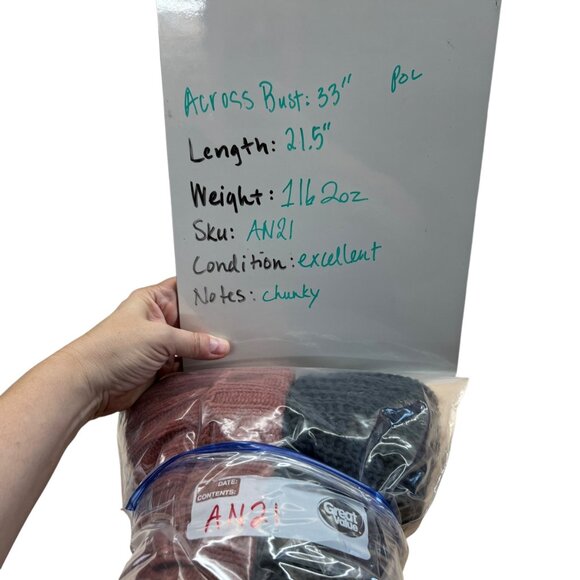 Across Bust: 33" POL
Length: 21.5"
Weight: 1lb 2oz
Sku: AN21
Condition: excellent
Notes: chunky
DATE:
CONTENTS:
AN21
Great Value